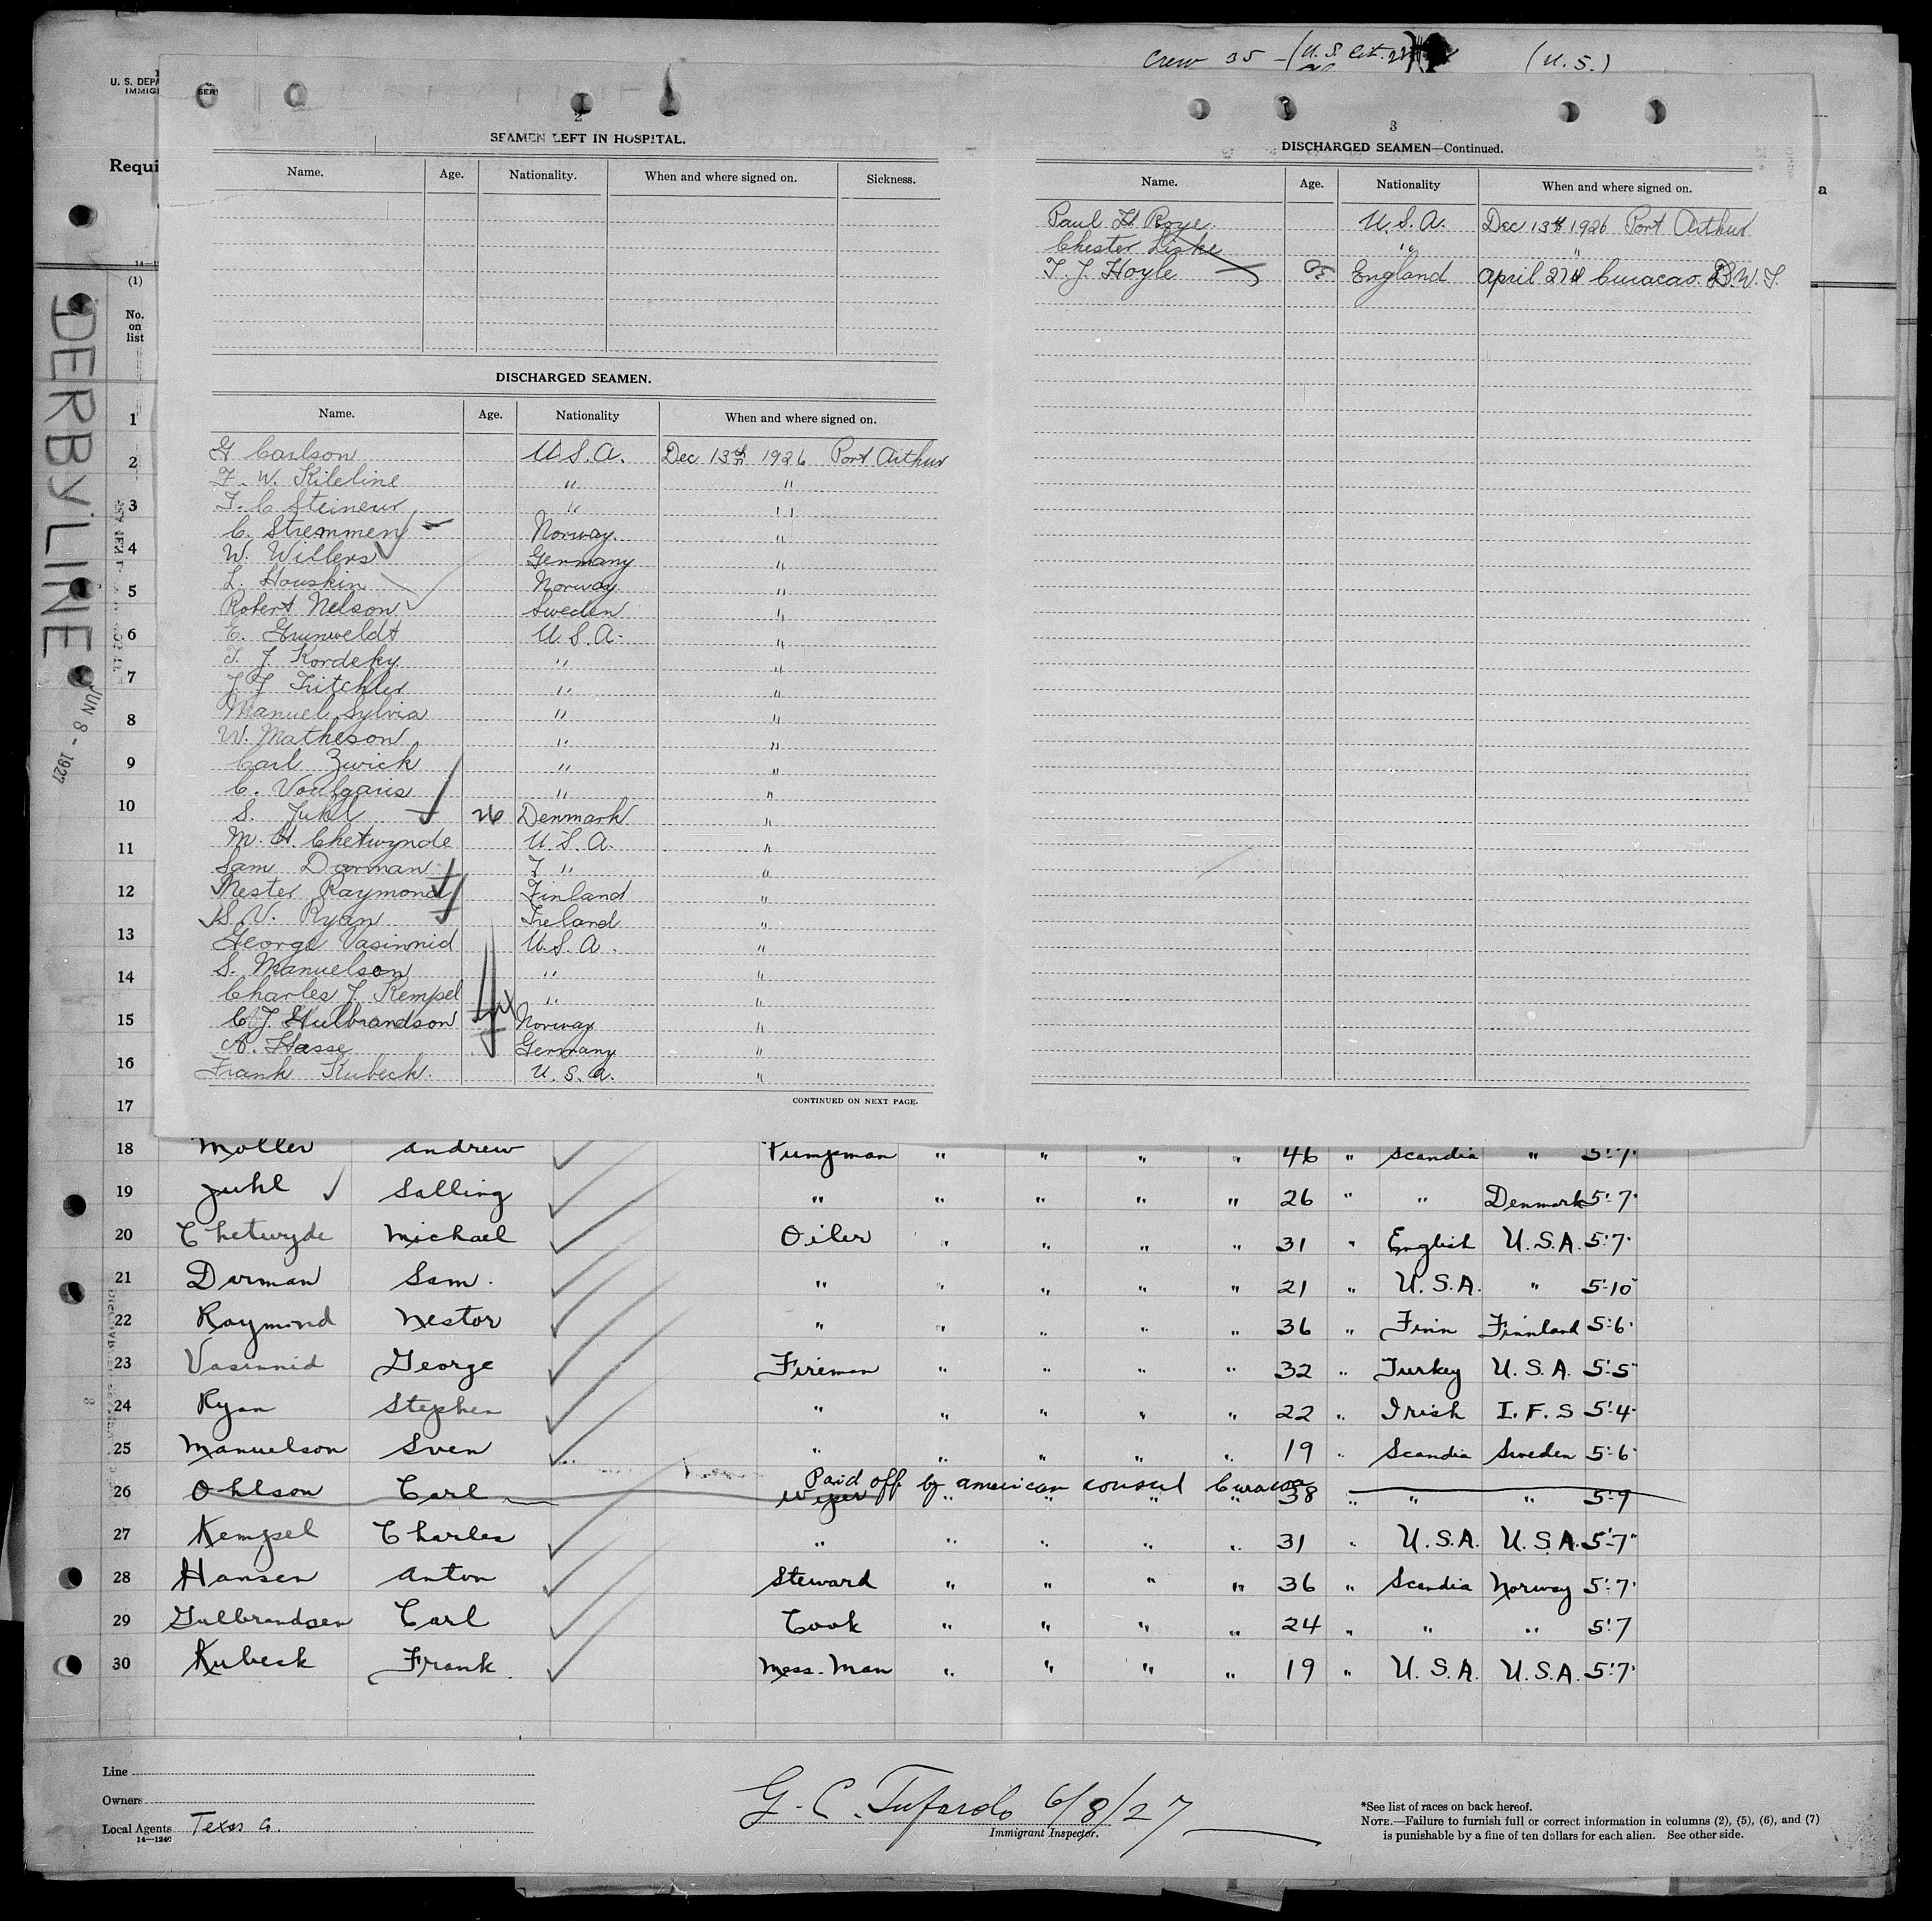 Crew 35 - (U.S. Cit. (U.S.)
U. S. DEPA
IMMIGI
SER
Requi
a
14—1
(1)
No.
on
list
DERBYLINE
JUN 8 - 1927
2
SEAMEN LEFT IN HOSPITAL.
Name. Age. Nationality. When and where signed on. Sickness.
DISCHARGED SEAMEN.
Name. Age. Nationality When and where signed on.
G Carlson U.S.A. Dec 13th 1926 Port Arthur
F. W. Kileline " "
F. C Steineur " "
C. Stremmen Norway. "
W. Willers Germany "
L. Houskin Norway "
Robert Nelson Sweden "
E. Grunweldt U.S.A. "
T. J. Kordeky " "
J. J Tritchler " "
Manuel Sylvia " "
W. Matheson " "
Carl Zwick " "
C. Voulgaris " "
S. Juhl 26 Denmark "
M. H. Chetwynde U.S.A. "
Sam Dorman " "
Nester Raymond Finland "
S. V. Ryan Ireland "
George Vasinnid U.S.A. "
S. Manuelson " "
Charles J. Kempel " "
C. J. Gulbrandson Norway "
A. Hasse Germany "
Frank Kubeck. U.S.A. "
CONTINUED ON NEXT PAGE.
3
DISCHARGED SEAMEN—Continued.
Name. Age. Nationality When and where signed on.
Paul H Roye. U.S.A. Dec 13th 1926 Port Arthur
Chester Liske " "
T. J. Hoyle England April 27th Curacao. B.W.I.
1
2
3
4
5
6
7
8
9
10
11
12
13
14
15
16
17
18 Moller Andrew Pumpman " " " " 46 " Scandia " 5'.7"
19 Juhl Salling " " " " " 26 " " Denmark 5'.7"
20 Chetwyde Michael Oiler " " " " 31 " English U.S.A. 5'.7"
21 Dorman Sam. " " " " " 21 " U.S.A. " 5'-10"
22 Raymond Nestor " " " " " 36 " Finn Finnland 5'.6"
23 Vasinnid George Fireman " " " " 32 " Turkey U.S.A. 5'.5"
24 Ryan Stephen " " " " " 22 " Irish I.F.S 5'.4"
25 Manuelson Sven " " " " " 19 " Scandia Sweden 5'.6"
Paid off by american consul Curacao
26 Ohlson Carl Wiper " " " " 38 " " " 5'.9
27 Kempel Charles " " " " " 31 " U.S.A. U.S.A. 5'.7"
28 Hansen Anton Steward " " " " 36 " Scandia Norway 5'.7"
29 Gulbrandsen Carl Cook " " " " 24 " " " 5'.7
30 Kubeck Frank. Mess-Man " " " " 19 " U.S.A. U.S.A. 5'.7"
Line
Owners
Local Agents Texas Co.
14—1240
G. C. Tufardo 6/8/27
Immigrant Inspector.
*See list of races on back hereof.
NOTE.—Failure to furnish full or correct information in columns (2), (5), (6), and (7)
is punishable by a fine of ten dollars for each alien. See other side.